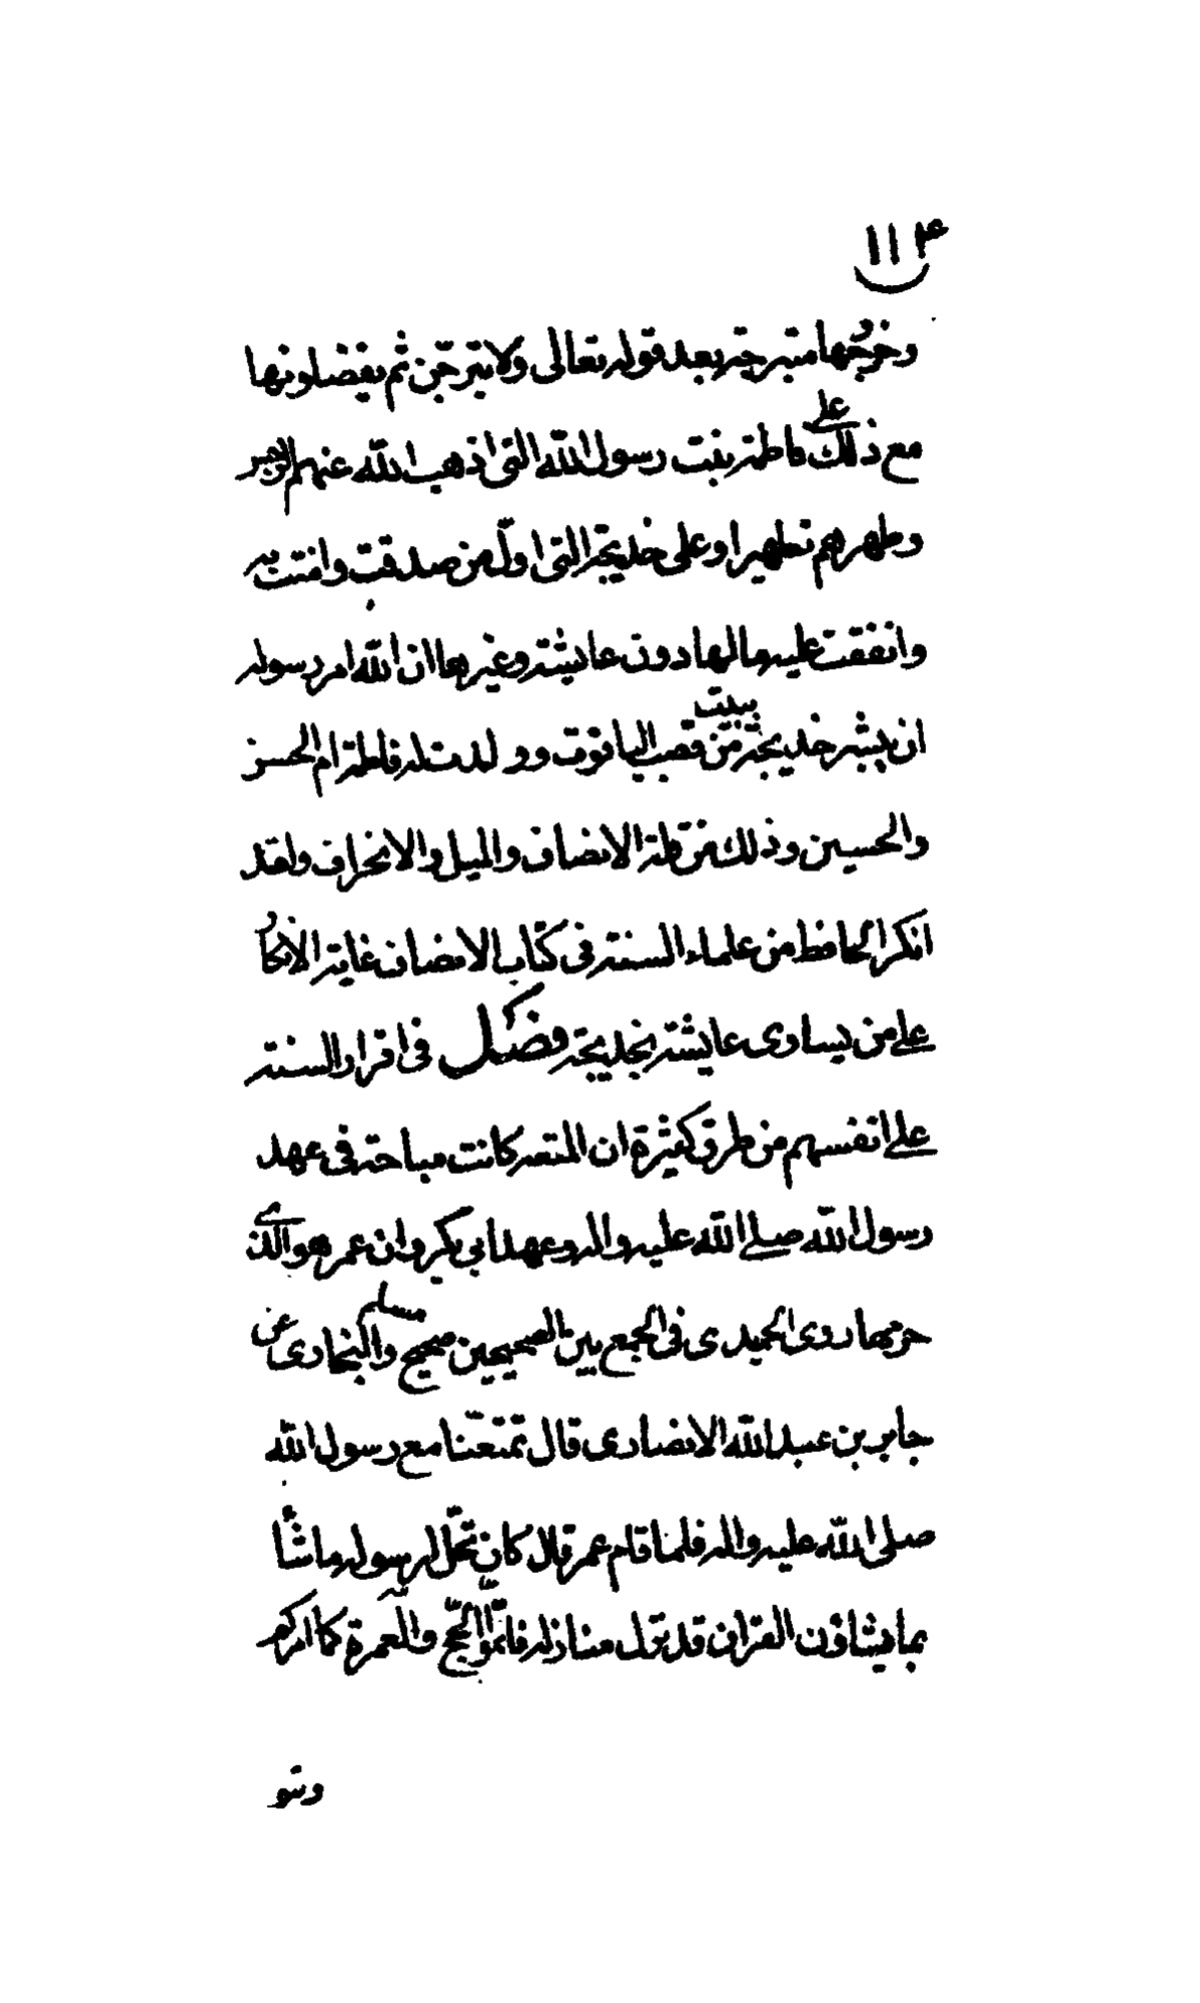 ١١٤
وخروجها متبرجة بعد قوله تعالى ولا تبرجن ثم يفضلونها
مع ذلك على فاطمة بنت رسول الله التى اذهب الله عنهم الرجس
وطهرهم تطهيرا وعلى خديجة التى اول من صدقت وامنت به
وانفقت عليه مالها دون عايشة وغيرها ان الله امر رسوله
ان يبشر خديجة ببيت من قصب الياقوت وولدت له فاطمة ام الحسن
والحسين وذلك من قلة الانصاف والميل والانحراف ولقد
انكر الحافظ من علماء السنة فى كتاب الانصاف غاية الانكار
على من يساوى عايشة بخديجة فصل فى اقرار السنة
على انفسهم من طرق كثيرة ان المتعه كانت مباحة فى عهد
رسول الله صلى الله عليه واله وعهد ابي بكر وان عمر هو الذى
حرمها روى الحميدى فى الجمع بين الصحيحين صحيح مسلم والبخارى عن
جابر بن عبد الله الانصارى قال تمتعنا مع رسول الله
صلى الله عليه واله فلما قام عمر قال كان يحل لرسوله ما شأ
بما يشاؤن القران قد نزل منازله فاتموا الحج والعمرة كما امركم